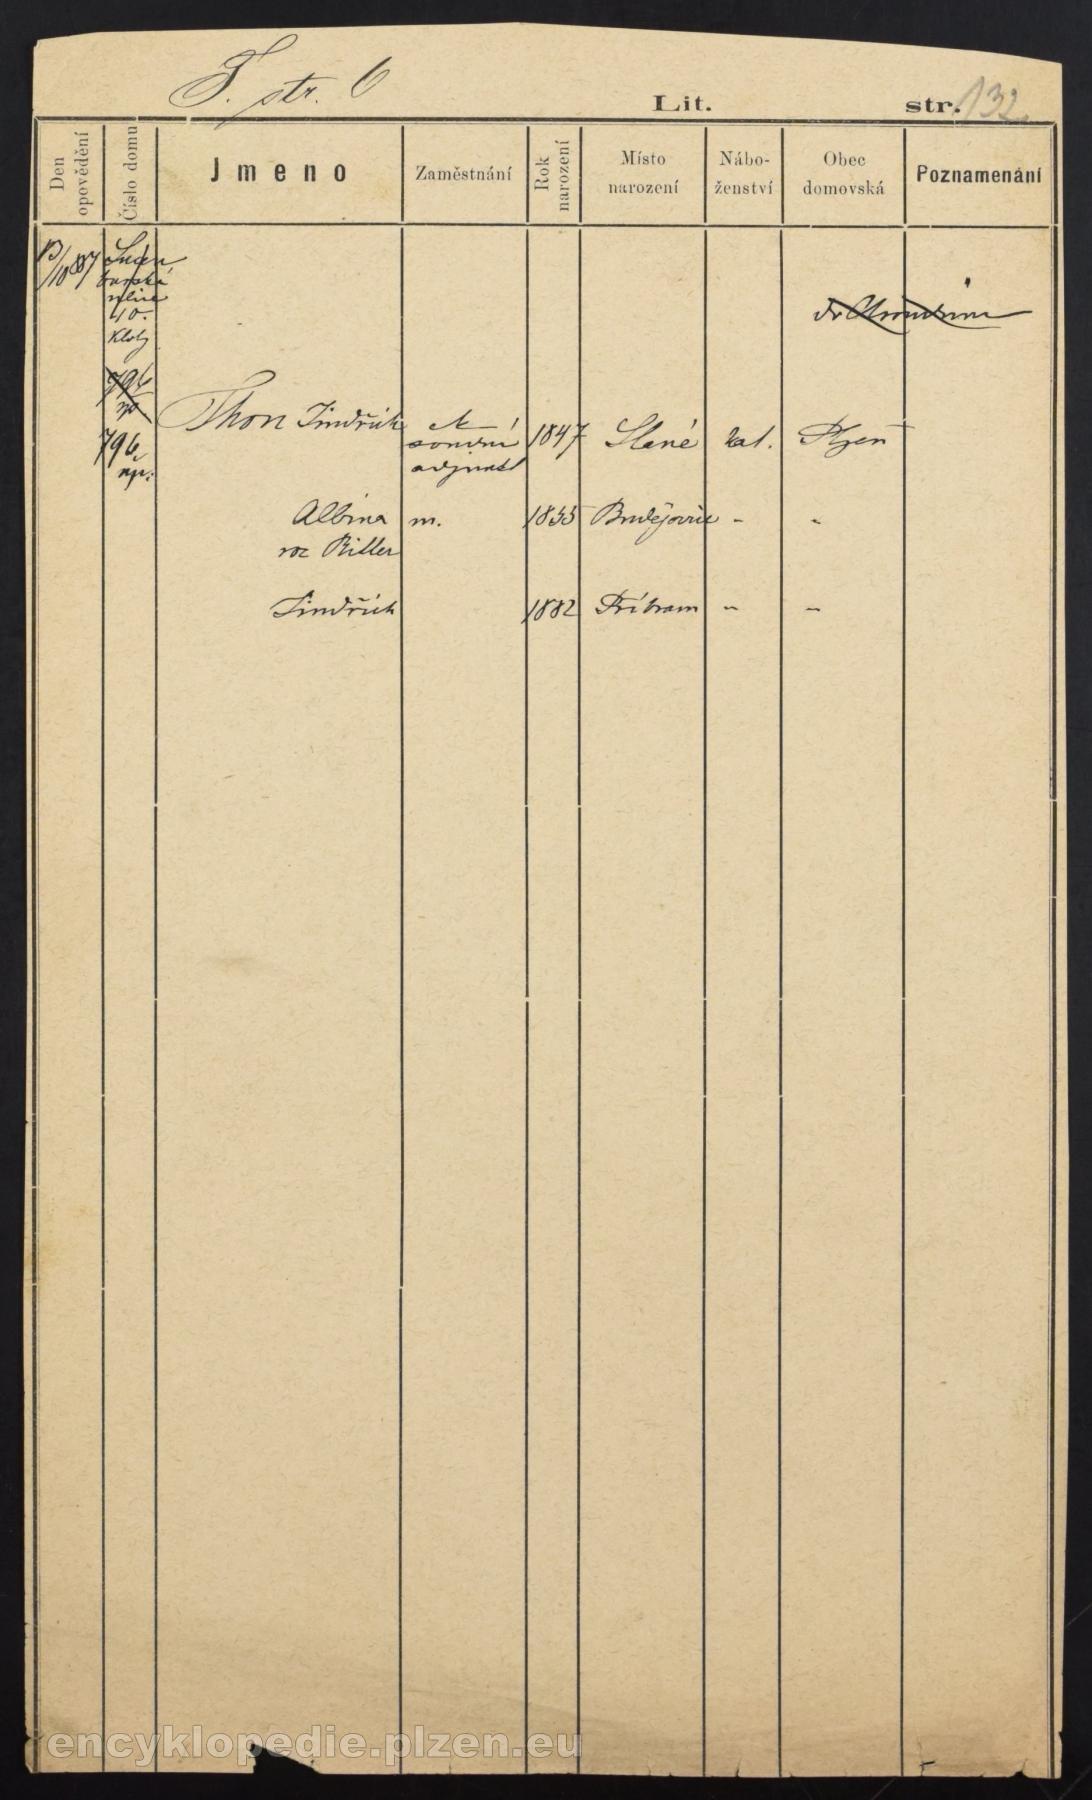 T. str. 6
Lit. str. 132.
Den opovědění Číslo domu Jmeno Zaměstnání Rok narození Místo narození Nábo-ženství Obec domovská Poznamenání
ulice
40.
796
796 Thon Jindřich soudní adjunkt 1847 Slané kat. Plzeň
čp.
Albina m. 1855 Budějovice - -
roz Ritter
Jindřich 1882 Příbram - -
encyklopedie.plzen.eu